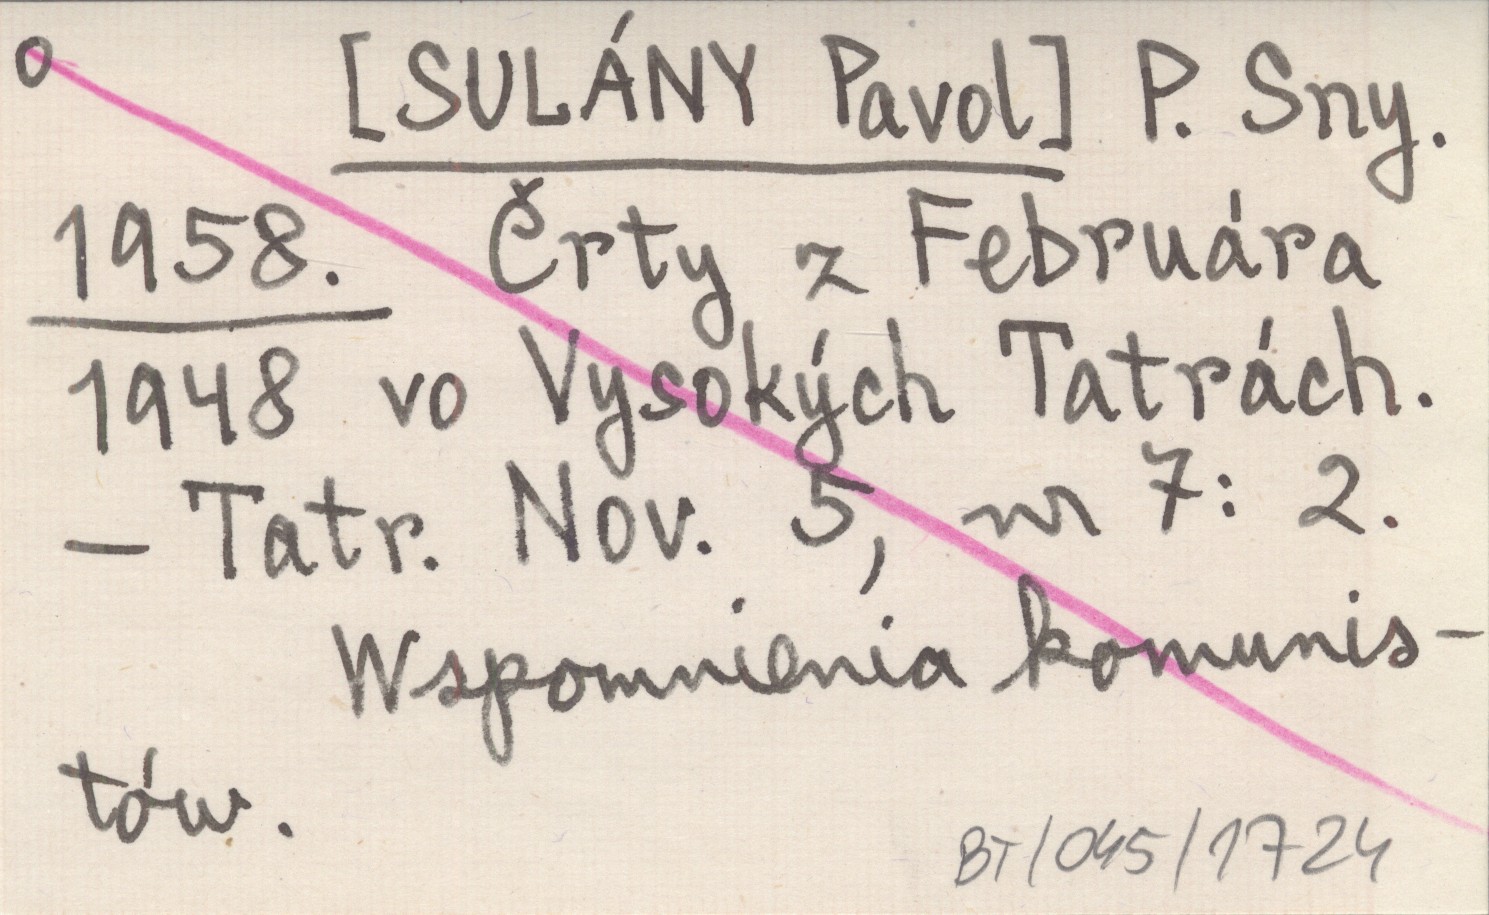 o [SULÁNY Pavol] P. Sny.
1958. Črty z Februára
1948 vo Vysokých Tatrách.
– Tatr. Nov. 5, nr 7: 2.
Wspomnienia komunis-
tów.
BT/045/1724